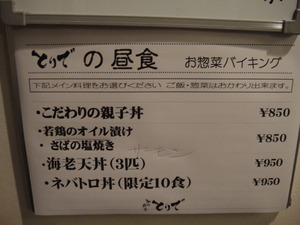 とりで の 昼食 お惣菜バイキング
下記メイン料理をお選びください ご飯・惣菜はおかわり出来ます。
・こだわりの親子丼 ¥850
・若鶏のオイル漬け
さばの塩焼き ¥850
・海老天丼(3匹) ¥950
・ネバトロ丼(限定10食) ¥950
とりで